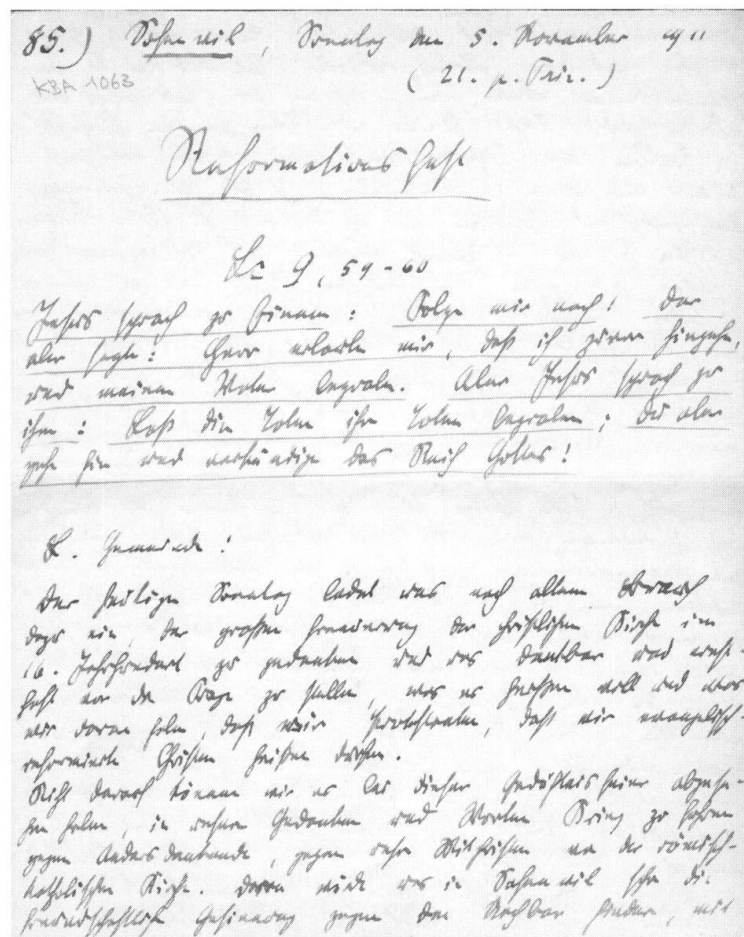 85.) Safenwil, Sonntag den 5. November 1911
KBA 1063
(21. p. Trin.)
Reformationsfest
Lc 9, 59-60
Jesus sprach zu Einem: Folge mir nach! Der
aber sagte: Herr erlaube mir, daß ich zuvor hingehe,
und meinen Vater begrabe. Aber Jesus sprach zu
ihm: Laß die Toten ihre Toten begraben; du aber
gehe hin und verkündige das Reich Gottes!
L. Gemeinde!
Der heutige Sonntag ladet uns nach altem Brauch
dazu ein, der großen Erneuerung der christlichen Kirche im
16. Jahrhundert zu gedenken und uns dankbar und ernst-
haft vor die Frage zu stellen, was es heißen will und was
wir daran haben, daß wir Protestanten, daß wir evangelisch-
reformierte Christen heißen dürfen.
Nicht darauf können wir es bei dieser Gedächtnisfeier abgese-
hen haben, in unsern Gedanken und Worten Krieg zu führen
gegen Andersdenkende, gegen unsre Mitchristen von der römisch-
katholischen Kirche. Daran würde uns in Safenwil schon die
freundschaftliche Gesinnung gegen den Nachbar hindern, mit